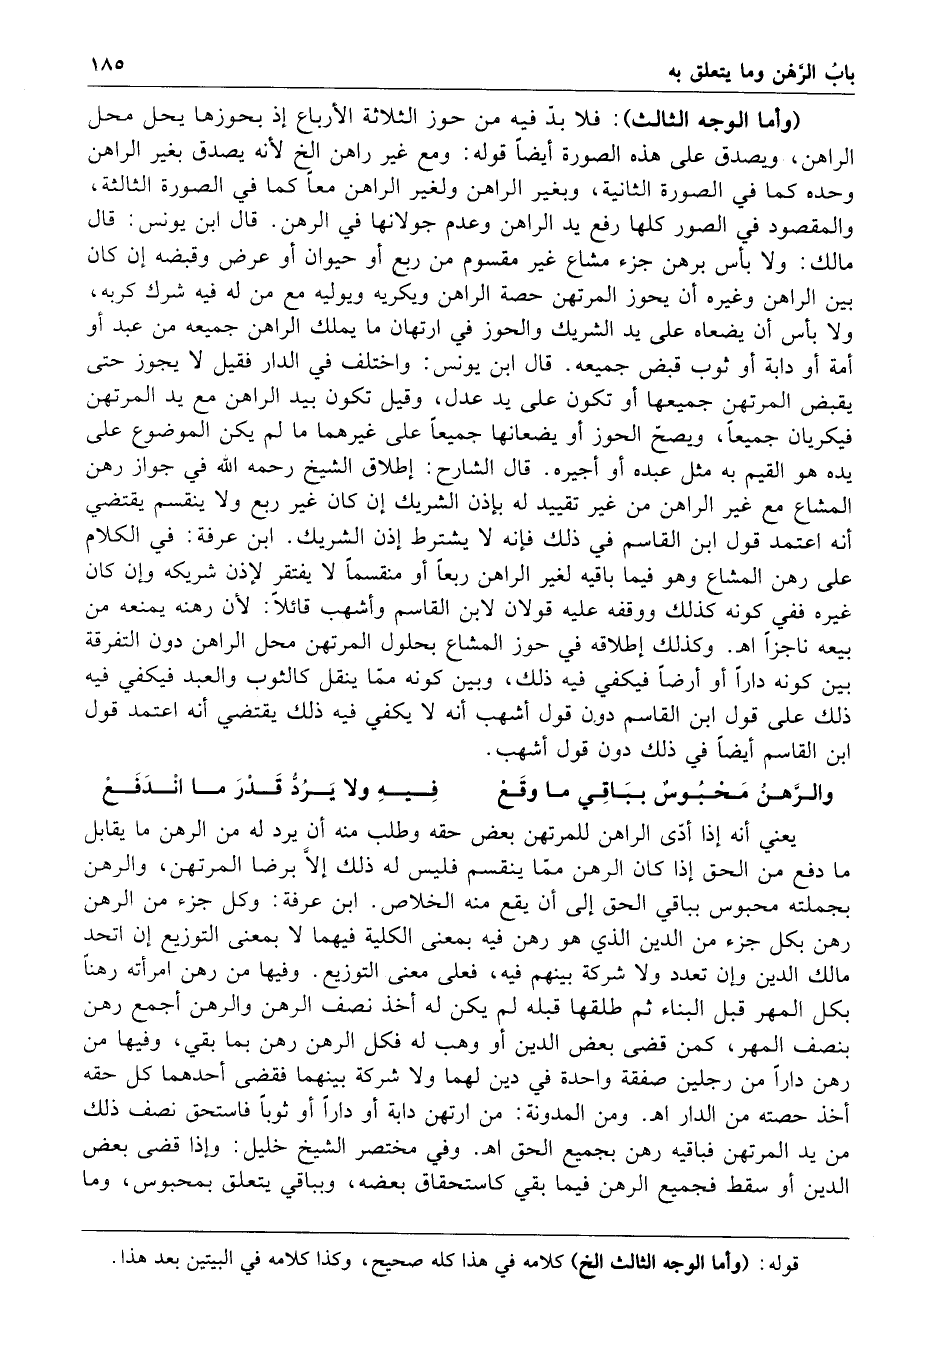 بابُ الرَّهْن وما يتعلق به ١٨٥
(وأما الوجه الثالث): فلا بدّ فيه من حوز الثلاثة الأرباع إذ بحوزها يحل محل
الراهن، ويصدق على هذه الصورة أيضاً قوله: ومع غير راهن الخ لأنه يصدق بغير الراهن
وحده كما في الصورة الثانية، وبغير الراهن ولغير الراهن معاً كما في الصورة الثالثة،
والمقصود في الصور كلها رفع يد الراهن وعدم جولانها في الرهن. قال ابن يونس: قال
مالك: ولا بأس برهن جزء مشاع غير مقسوم من ربع أو حيوان أو عرض وقبضه إن كان
بين الراهن وغيره أن يحوز المرتهن حصة الراهن ويكريه ويوليه مع من له فيه شرك كربه،
ولا بأس أن يضعاه على يد الشريك والحوز في ارتهان ما يملك الراهن جميعه من عبد أو
أمة أو دابة أو ثوب قبض جميعه. قال ابن يونس: واختلف في الدار فقيل لا يجوز حتى
يقبض المرتهن جميعها أو تكون على يد عدل، وقيل تكون بيد الراهن مع يد المرتهن
فيكريان جميعاً، ويصحّ الحوز أو يضعانها جميعاً على غيرهما ما لم يكن الموضوع على
يده هو القيم به مثل عبده أو أجيره. قال الشارح: إطلاق الشيخ رحمه الله في جواز رهن
المشاع مع غير الراهن من غير تقييد له بإذن الشريك إن كان غير ربع ولا ينقسم يقتضي
أنه اعتمد قول ابن القاسم في ذلك فإنه لا يشترط إذن الشريك. ابن عرفة: في الكلام
على رهن المشاع وهو فيما باقيه لغير الراهن ربعاً أو منقسماً لا يفتقر لإذن شريكه وإن كان
غيره ففي كونه كذلك ووقفه عليه قولان لابن القاسم وأشهب قائلاً: لأن رهنه يمنعه من
بيعه ناجزاً اهـ. وكذلك إطلاقه في حوز المشاع بحلول المرتهن محل الراهن دون التفرقة
بين كونه داراً أو أرضاً فيكفي فيه ذلك، وبين كونه ممّا ينقل كالثوب والعبد فيكفي فيه
ذلك على قول ابن القاسم دون قول أشهب أنه لا يكفي فيه ذلك يقتضي أنه اعتمد قول
ابن القاسم أيضاً في ذلك دون قول أشهب.
والرَّهنُ مَحْبُوسٌ بِبَاقِي ما وقَعْ فِيهِ ولا يَرُدُّ قَدْرَ ما انْدَفَعْ
يعني أنه إذا أدّى الراهن للمرتهن بعض حقه وطلب منه أن يرد له من الرهن ما يقابل
ما دفع من الحق إذا كان الرهن ممّا ينقسم فليس له ذلك إلاَّ برضا المرتهن، والرهن
بجملته محبوس بباقي الحق إلى أن يقع منه الخلاص. ابن عرفة: وكل جزء من الرهن
رهن بكل جزء من الدين الذي هو رهن فيه بمعنى الكلية فيهما لا بمعنى التوزيع إن اتحد
مالك الدين وإن تعدد ولا شركة بينهم فيه، فعلى معنى التوزيع. وفيها من رهن امرأته رهناً
بكل المهر قبل البناء ثم طلقها قبله لم يكن له أخذ نصف الرهن والرهن أجمع رهن
بنصف المهر، كمن قضى بعض الدين أو وهب له فكل الرهن رهن بما بقي، وفيها من
رهن داراً من رجلين صفقة واحدة في دين لهما ولا شركة بينهما فقضى أحدهما كل حقه
أخذ حصته من الدار اهـ. ومن المدونة: من ارتهن دابة أو داراً أو ثوباً فاستحق نصف ذلك
من يد المرتهن فباقيه رهن بجميع الحق اهـ. وفي مختصر الشيخ خليل: وإذا قضى بعض
الدين أو سقط فجميع الرهن فيما بقي كاستحقاق بعضه، وبباقي يتعلق بمحبوس، وما
قوله: (وأما الوجه الثالث الخ) كلامه في هذا كله صحيح، وكذا كلامه في البيتين بعد هذا.